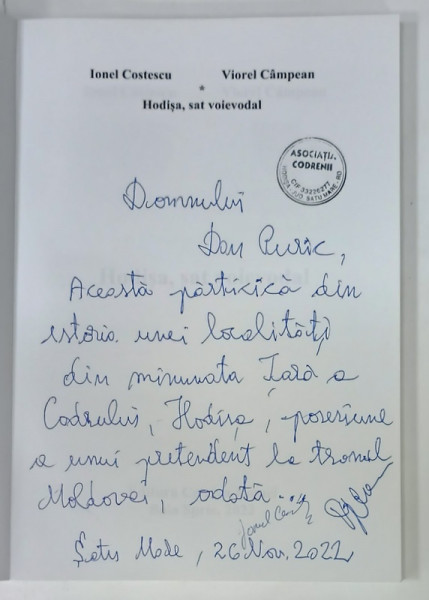 Ionel Costescu Viorel Câmpean
*
Hodișa, sat voievodal
ASOCIAȚIA
CODRENII
CIF 33226277
HODIȘA - JUD. SATU MARE - RO
Domnului
Dan Puric,
Această părticică din
istoria unei localități
din minunata Țară a
Codrului, Hodișa, posesiune
a unui pretendent la tronul
Moldovei, odată...
Satu Mare, 26 Nov. 2022